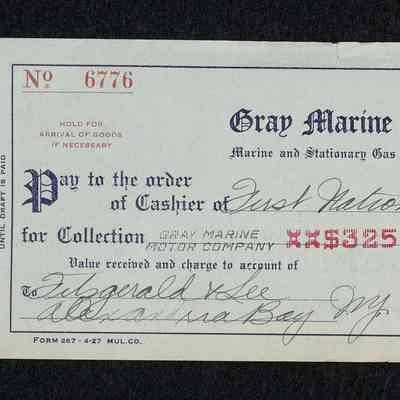 No. 6776
HOLD FOR
ARRIVAL OF GOODS
IF NECESSARY
Gray Marine
Marine and Stationary Gas
Pay to the order
of Cashier of First Nation
for Collection GRAY MARINE
MOTOR COMPANY XX$325
Value received and charge to account of
To Fitzgerald & Lee
Alexandria Bay NY.
FORM 267 - 4-27 MUL. CO.
UNTIL DRAFT IS PAID